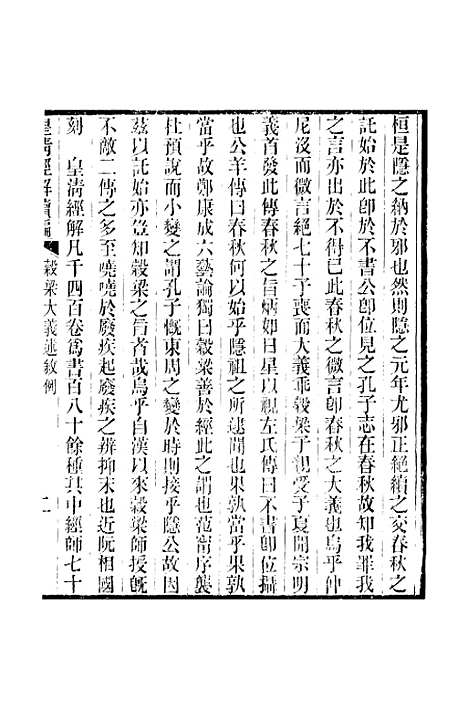 桓是隱之納於邪也然則隱之元年尤邪正絕續之交春秋之
託始於此卽於不書公卽位見之孔子志在春秋故知我罪我
之言亦出於不得已此春秋之微言卽春秋之大義也烏乎仲
尼沒而微言絕七十子喪而大義乖穀梁子親受子夏開宗明
義首發此傳春秋之旨炳如日星以視左氏傳曰不書卽位攝
也公羊傳曰春秋何以始乎隱祖之所逮聞也果孰當乎果孰
當乎故鄭康成六藝論獨曰穀梁善於經此之謂也范甯序襲
杜預說而小變之謂孔子慨東周之變於時則接乎隱公故因
茲以託始亦豈知穀梁之旨者哉烏乎自漢以來穀梁師授旣
不敵二傳之多至嘵嘵於廢疾起廢疾之辨抑末也近阮相國
刻 皇清經解凡千四百卷爲書百八十餘種其中經師七十
皇清經解續編 穀梁大義述敘例 二